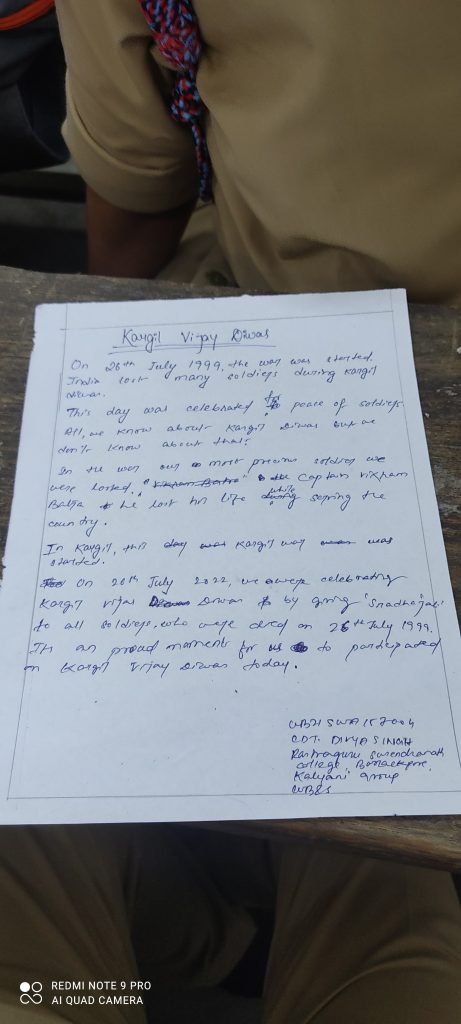 Kargil Vijay Diwas
On 26th July 1999, the war was started.
India lost many soldiers during Kargil
diwas.
This day was celebrated for peace of soldiers.
All, we know about Kargil Diwas but we
don't know about that.
In the war our most precious soldier we
were losted. Captain Vikram
Batra he lost his life while serving the
country.
In Kargil, this Kargil war was
started.
On 26th July 2022, we were celebrating
Kargil Vijas Diwas by giving "Sradhanjali"
to all soldiers. who were died on 26th July 1999.
Its an proud moment for us to participated
in Kargil Vijay Diwas today.
CDT. DIVYA SINGH
Rastraguru Surendranath
College, Barrackpore,
Kalyani group
WB&S
REDMI NOTE 9 PRO
AI QUAD CAMERA